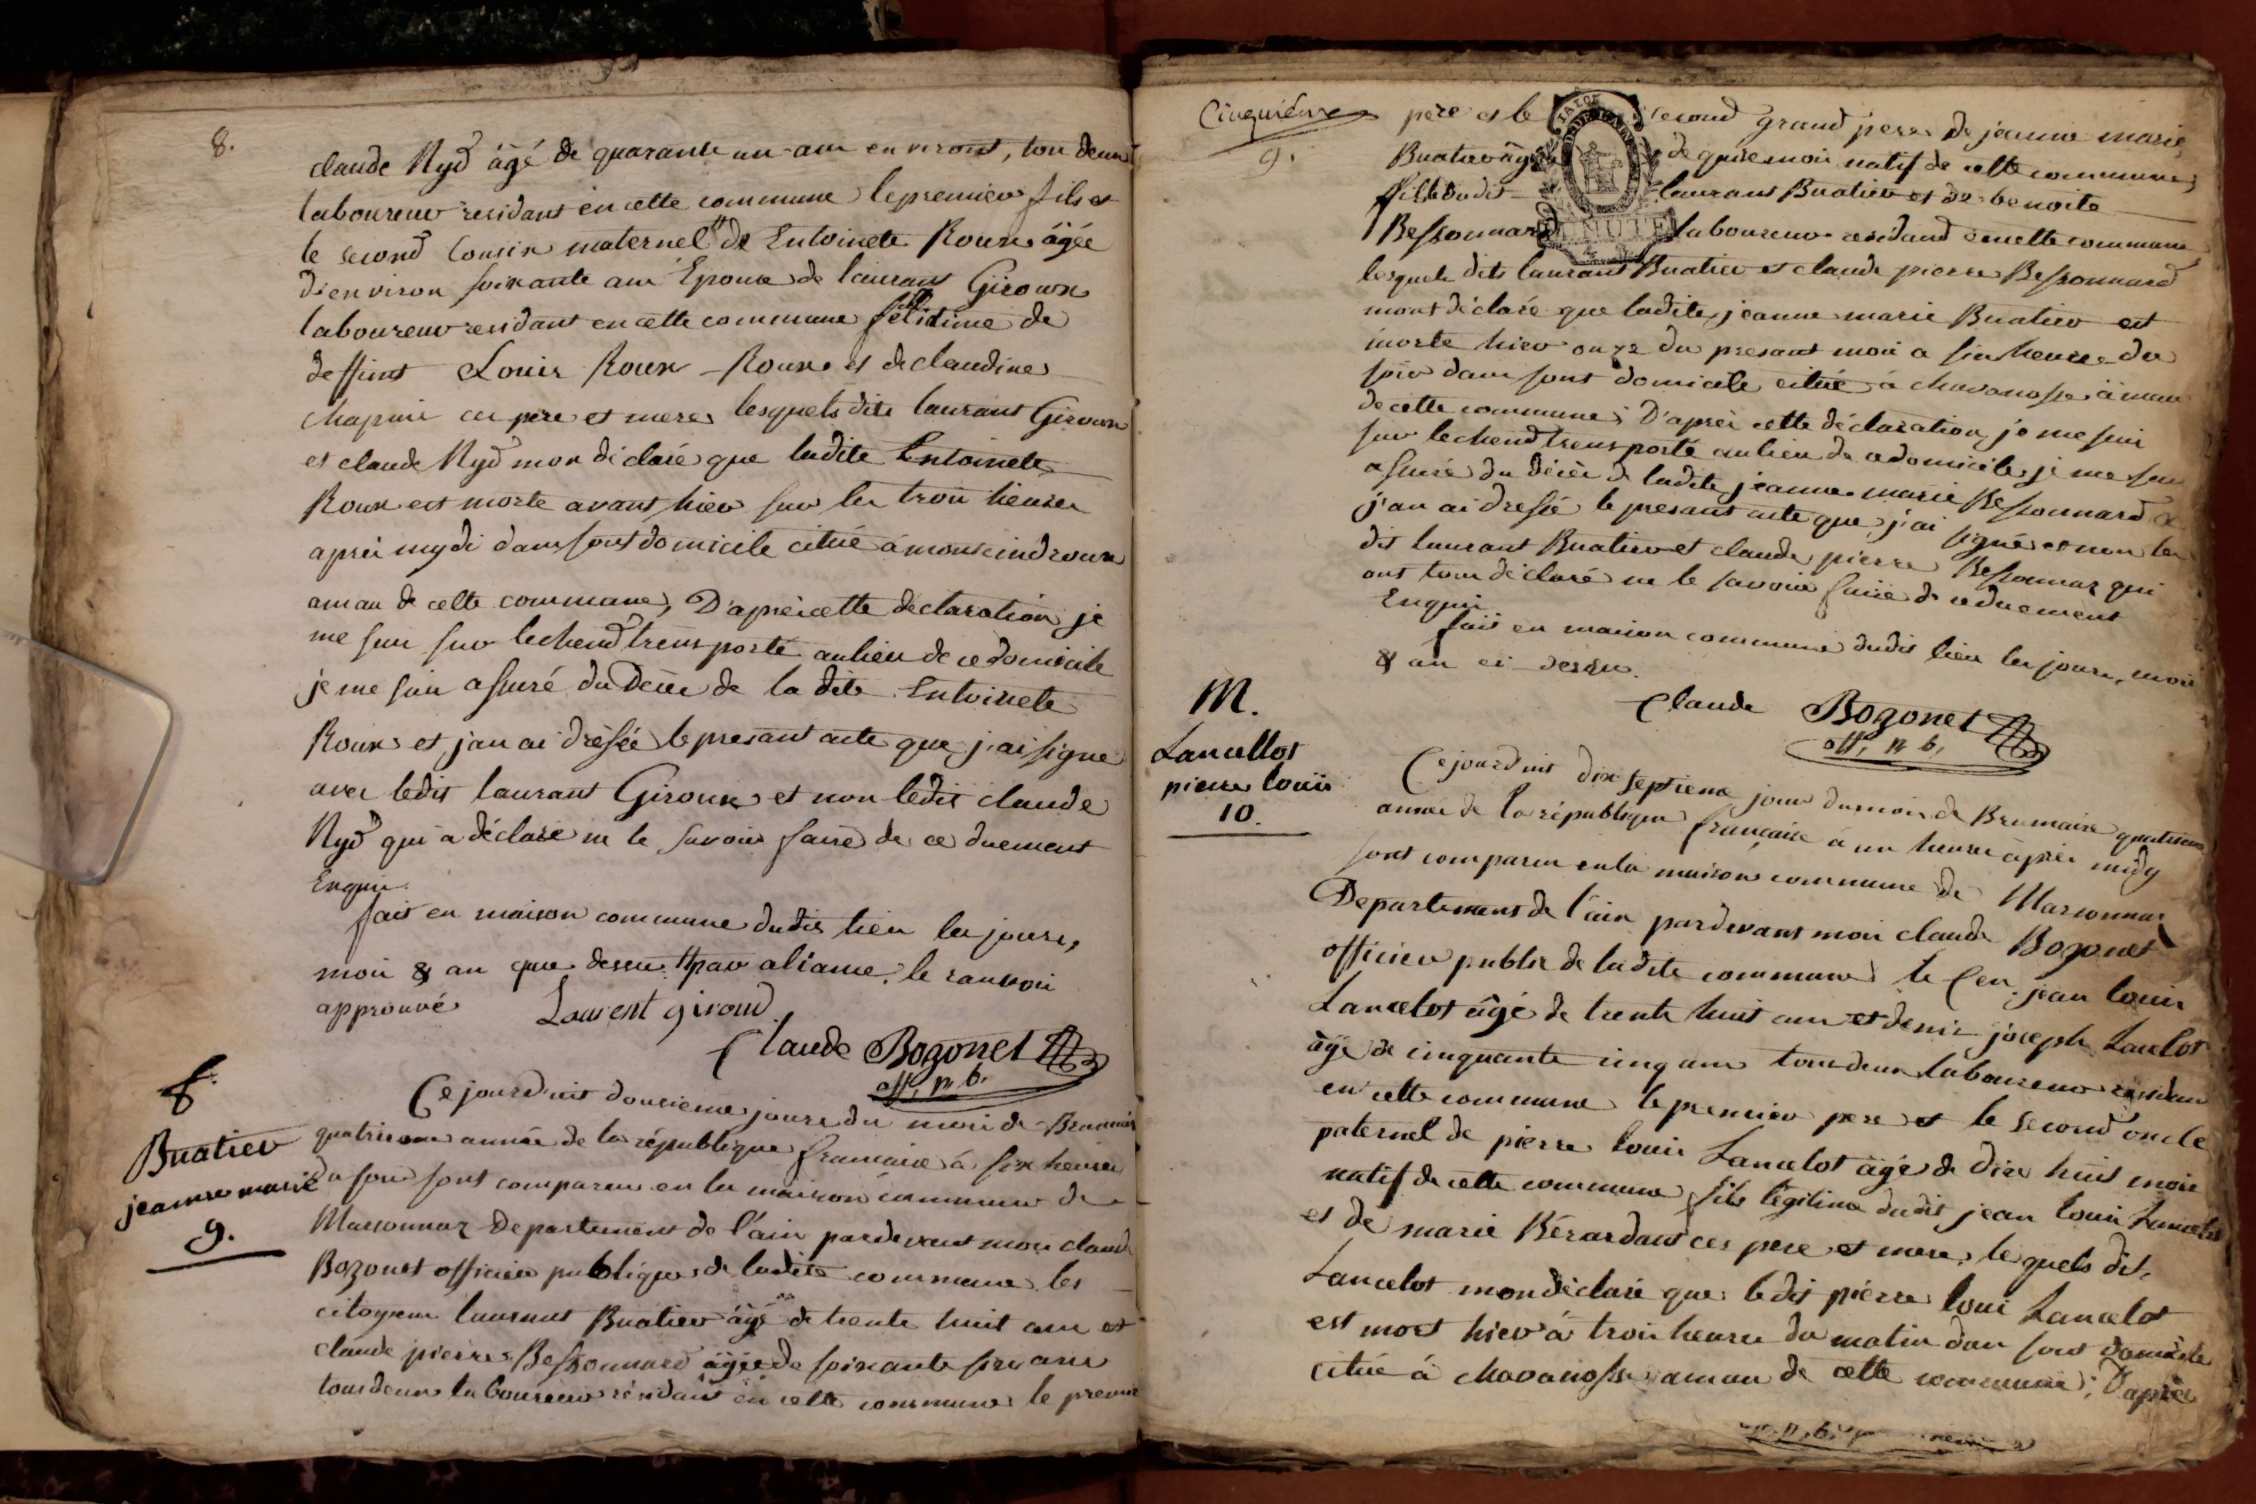 8.
claude Nyd âgé de quarante un ans environt, tou deux
laboureur residant en cette commune le premier fils et
le second Cousin maternel # de Entoinete Roux âgée
d'environ soixante ans Epouse de laurant Giroux
laboureur residant en cette commune fille legitime de
deffunt Louis Roux Roux et de claudine
chapuis ces pere et mere lesquels dits laurant Giroux
et claude Nyd mon déclaré que ladite Entoinete
Roux est morte avant hier sur les trois heures
aprés mydi dans sont domicile citué à
amau de cette commune, D'aprés cette déclaration je
me suis sur lechend trensporté au lieu de ce domicile
je me suis assuré du décés de la dite Entoinete
Roux et j'an ai dressée le presant acte que j'ai signé
avec ledit laurant Giroux et non ledit claude
Nyd qui a déclaré ne le savoir faire de ce duement
Enquis.
fait en maison commune dudit lieu les jours,
moi & an que dessu. # par aliance, le ranvoi
approuvé Laurent giroud
Claude Bozonet
off. p. b.
f.
Buatier
jeanne marie
9.
Cejourd'uit dousieme jours du moi de Brumair
quatrieme année de la république francaise à six heures
du soir sont comparus en la maison commune de
Marsonnaz Departement de l'ain pardevant moi claude
Bozonet officier publique de ladite commune les
citoyens laurant Buatier âgé de trente huit ans et
claude pierre Bessonnard âgée de soixante six ans
tous deux laboureur résidant en cette commune le premier
Cinquiéme
9.
pere et le second grand pere de jeanne marie
Buatier âgé de quinze moi natif de cette commune,
fille dudit laurant Buatier et de benoite
Bessonnard laboureur residand en cette commune
lesquels dits laurant Buatier et claude pierre Bessonnard
mont déclaré que ladite jeanne marie Buatier est
morte hier onze du presant moi a six heures du
soir dans sont domicile citué à chavanosse amau
de cette commune; D'aprés cette déclaration je me suis
sur lechend trensporté au lieu de ce domicile je me suis
assuré du décès de ladite jeanne marie Bessonnard &
j'an ai dressée le presant acte que j'ai signé et non les
dit laurant Buatier et claude pierre Bessonnaz qui
ont tous déclaré ne le savoir faire de ce duement
Enquis
fait en maison commune dudit lieu les jours, moi
& an ci dessu.
Claude Bozonet
off. p. b.
M.
Lancellot
pierre louis
10.
Cejourd'uit dix septieme jour du moi de Brumaire quatrieme
année de la république française à un heure aprés midy
sont comparus en la maison commune de Marsonnaz
Departement de l'ain pardevant moi claude Bozonet
officier public de ladite commune le Cen. jean louis
Lancelot âgé de trente huit ans et denis joseph Lancelot
âgé de cinquante cinq ans tous deux laboureur résidan
en cette commune le premier pere et le second oncle
paternel de pierre louis Lancelot âgé de dix huit moi
natif de cette commune fils légitime dudit jean louis Lancelot
et de marie Bérardant ces pere et mere, lequels dit,
Lancelot mon déclaré que ledit pierre loui Lancelot
est mort hier à trois heures du matin dan sont domicile
citué à chavanosse amau de cette commune; D'aprés